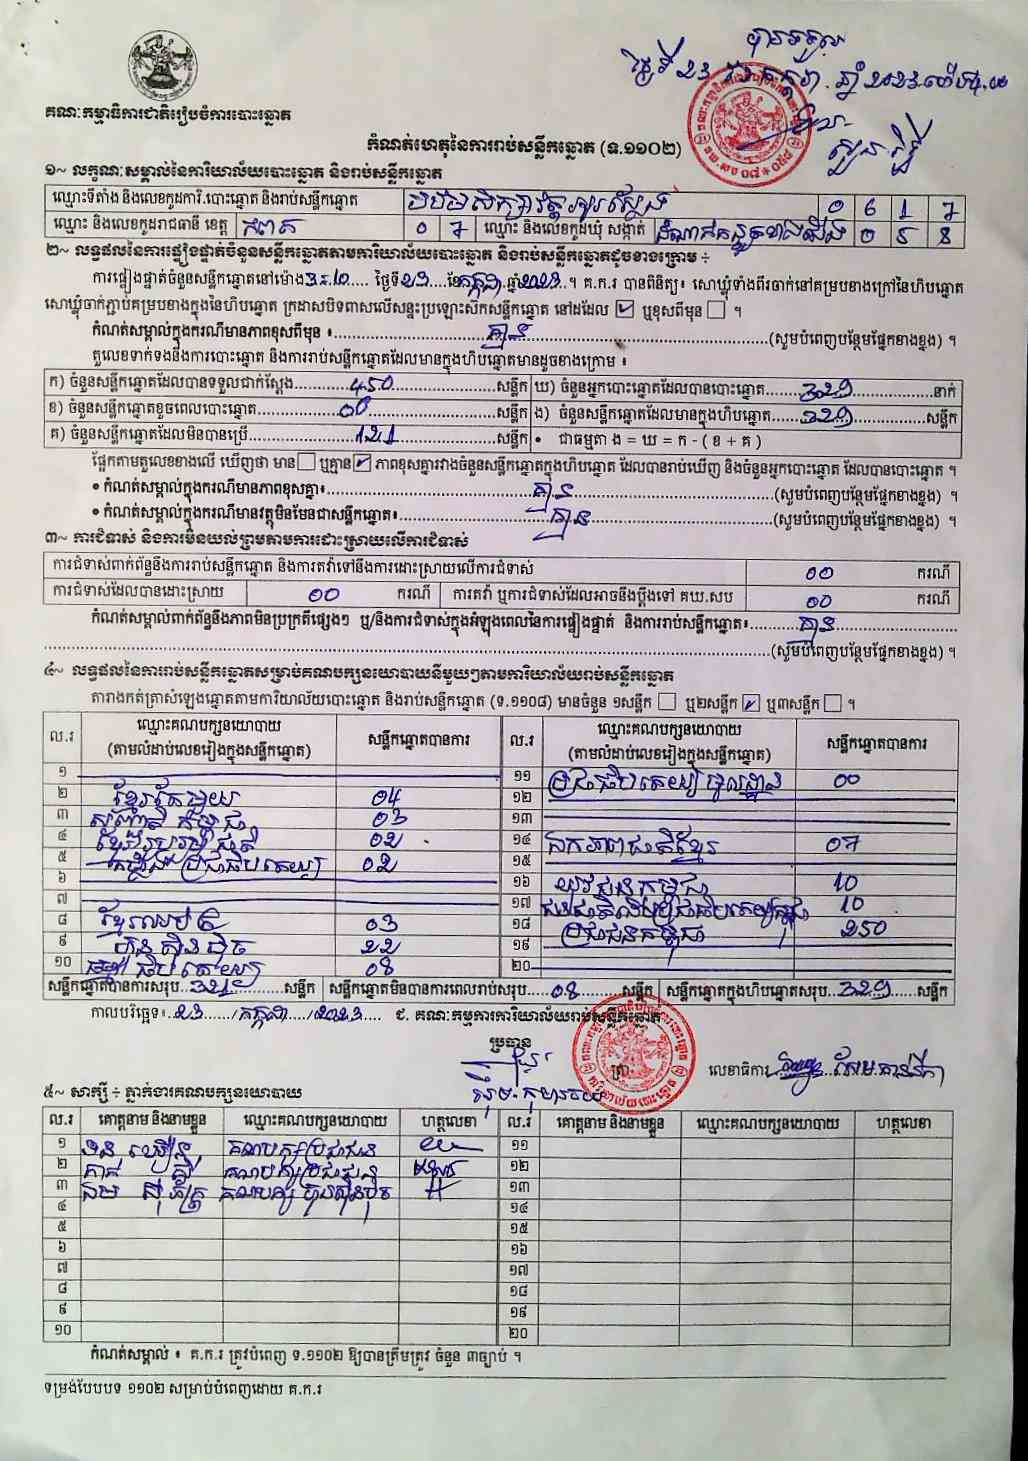 គណៈកម្មាធិការជាតិរៀបចំការបោះឆ្នោត
កំណត់ហេតុនៃការរាប់សន្លឹកឆ្នោត (ទ.១១០២)
១~ លក្ខណៈសម្គាល់នៃការិយាល័យបោះឆ្នោត និងរាប់សន្លឹកឆ្នោត
ឈ្មោះទីតាំង និងលេខកូដការិ.បោះឆ្នោត និងរាប់សន្លឹកឆ្នោត 0 6 1 7
ឈ្មោះ និងលេខកូដរាជធានី ខេត្ត កំពត 0 7 ឈ្មោះ និងលេខកូដឃុំ សង្កាត់ 0 5 8
២~ លទ្ធផលនៃការផ្ទៀងផ្ទាត់ចំនួនសន្លឹកឆ្នោតតាមការិយាល័យបោះឆ្នោត និងរាប់សន្លឹកឆ្នោតដូចខាងក្រោម ÷
ការផ្ទៀងផ្ទាត់ចំនួនសន្លឹកឆ្នោតនៅម៉ោង ថ្ងៃទី២៣ ខែកក្កដា ឆ្នាំ២០២៣ ។ គ.ក.រ បានពិនិត្យ៖ សោឃ្លុំទាំងពីរចាក់នៅគម្របខាងក្រៅនៃហិបឆ្នោត
សោឃ្លុំចាក់ភ្ជាប់គម្របខាងក្នុងនៃហិបឆ្នោត ក្រដាសបិទពាសលើសន្ទះប្រឡោះសឹកសន្លឹកឆ្នោត នៅដដែល ☑ ឬខុសពីមុន ☐ ។
កំណត់សម្គាល់ក្នុងករណីមានភាពខុសពីមុន ៖ គ្មាន (សូមបំពេញបន្ថែមផ្នែកខាងខ្នង) ។
តួលេខទាក់ទងនឹងការបោះឆ្នោត និងការរាប់សន្លឹកឆ្នោតដែលមានក្នុងហិបឆ្នោតមានដូចខាងក្រោម ៖
ក) ចំនួនសន្លឹកឆ្នោតដែលបានទទួលជាក់ស្តែង 450 សន្លឹក ឃ) ចំនួនអ្នកបោះឆ្នោតដែលបានបោះឆ្នោត 329 នាក់
ខ) ចំនួនសន្លឹកឆ្នោតខូចពេលបោះឆ្នោត 00 សន្លឹក ង) ចំនួនសន្លឹកឆ្នោតដែលមានក្នុងហិបឆ្នោត 329 សន្លឹក
គ) ចំនួនសន្លឹកឆ្នោតដែលមិនបានប្រើ 121 សន្លឹក • ជាធម្មតា ង = ឃ = ក - ( ខ + គ )
ផ្អែកតាមតួលេខខាងលើ ឃើញថា មាន ☐ ឬគ្មាន ☑ ភាពខុសគ្នារវាងចំនួនសន្លឹកឆ្នោតក្នុងហិបឆ្នោត ដែលបានរាប់ឃើញ និងចំនួនអ្នកបោះឆ្នោត ដែលបានបោះឆ្នោត ។
• កំណត់សម្គាល់ក្នុងករណីមានភាពខុសគ្នា៖ គ្មាន (សូមបំពេញបន្ថែមផ្នែកខាងខ្នង) ។
• កំណត់សម្គាល់ក្នុងករណីមានវត្ថុមិនមែនជាសន្លឹកឆ្នោត៖ គ្មាន (សូមបំពេញបន្ថែមផ្នែកខាងខ្នង) ។
៣~ ការជំទាស់ និងការមិនយល់ព្រមតាមការដោះស្រាយលើការជំទាស់
ការជំទាស់ពាក់ព័ន្ធនឹងការរាប់សន្លឹកឆ្នោត និងការតវ៉ាទៅនឹងការដោះស្រាយលើការជំទាស់ 00 ករណី
ការជំទាស់ដែលបានដោះស្រាយ 00 ករណី ការតវ៉ា ឬការជំទាស់ដែលអាចនឹងប្តឹងទៅ គឃ.សប 00 ករណី
កំណត់សម្គាល់ពាក់ព័ន្ធនឹងភាពមិនប្រក្រតីផ្សេងៗ ឬ/និងការជំទាស់ក្នុងអំឡុងពេលនៃការផ្ទៀងផ្ទាត់ និងការរាប់សន្លឹកឆ្នោត៖ គ្មាន
(សូមបំពេញបន្ថែមផ្នែកខាងខ្នង) ។
៤~ លទ្ធផលនៃការរាប់សន្លឹកឆ្នោតសម្រាប់គណបក្សនយោបាយនីមួយៗតាមការិយាល័យរាប់សន្លឹកឆ្នោត
តារាងកត់ត្រាសំឡេងឆ្នោតតាមការិយាល័យបោះឆ្នោត និងរាប់សន្លឹកឆ្នោត (ទ.១១០៨) មានចំនួន ១សន្លឹក ☐ ឬ២សន្លឹក ☑ ឬ៣សន្លឹក ☐ ។
ល.រ ឈ្មោះគណបក្សនយោបាយ (តាមលំដាប់លេខរៀងក្នុងសន្លឹកឆ្នោត) សន្លឹកឆ្នោតបានការ ល.រ ឈ្មោះគណបក្សនយោបាយ (តាមលំដាប់លេខរៀងក្នុងសន្លឹកឆ្នោត) សន្លឹកឆ្នោតបានការ
១ ១១ ប្រជាធិបតេយ្យមូលដ្ឋាន 00
២ ខ្មែរតែមួយ 04 ១២
៣ 03 ១៣
៤ 02 ១៤ ឯកភាពជាតិខ្មែរ 07
៥ កម្លាំងប្រជាធិបតេយ្យ 02 ១៥
៦ ១៦ យុវជនកម្ពុជា 10
៧ ១៧ 10
៨ 03 ១៨ ប្រជាជនកម្ពុជា 250
៩ ហ៊្វុនស៊ិនប៉ិច 22 ១៩
១០ ធម្មាធិបតេយ្យ 08 ២០
សន្លឹកឆ្នោតបានការសរុប 321 សន្លឹក សន្លឹកឆ្នោតមិនបានការពេលរាប់សរុប 08 សន្លឹក សន្លឹកឆ្នោតក្នុងហិបឆ្នោតសរុប 329 សន្លឹក
កាលបរិច្ឆេទ៖ ២៣ / កក្កដា / ២០២៣ ជ. គណៈកម្មការការិយាល័យរាប់សន្លឹកឆ្នោត
ប្រធាន
ត្រា លេខាធិការ
៥~ សាក្សី ÷ ភ្នាក់ងារគណបក្សនយោបាយ
ល.រ គោត្តនាម និងនាមខ្លួន ឈ្មោះគណបក្សនយោបាយ ហត្ថលេខា ល.រ គោត្តនាម និងនាមខ្លួន ឈ្មោះគណបក្សនយោបាយ ហត្ថលេខា
១ គណបក្សប្រជាជន ១១
២ គណបក្សប្រជាជន ១២
៣ គណបក្ស ហ៊្វុនស៊ិនប៉ិច ១៣
៤ ១៤
៥ ១៥
៦ ១៦
៧ ១៧
៨ ១៨
៩ ១៩
១០ ២០
កំណត់សម្គាល់ ៖ គ.ក.រ ត្រូវបំពេញ ទ.១១០២ ឱ្យបានត្រឹមត្រូវ ចំនួន ៣ច្បាប់ ។
ទម្រង់បែបបទ ១១០២ សម្រាប់បំពេញដោយ គ.ក.រ